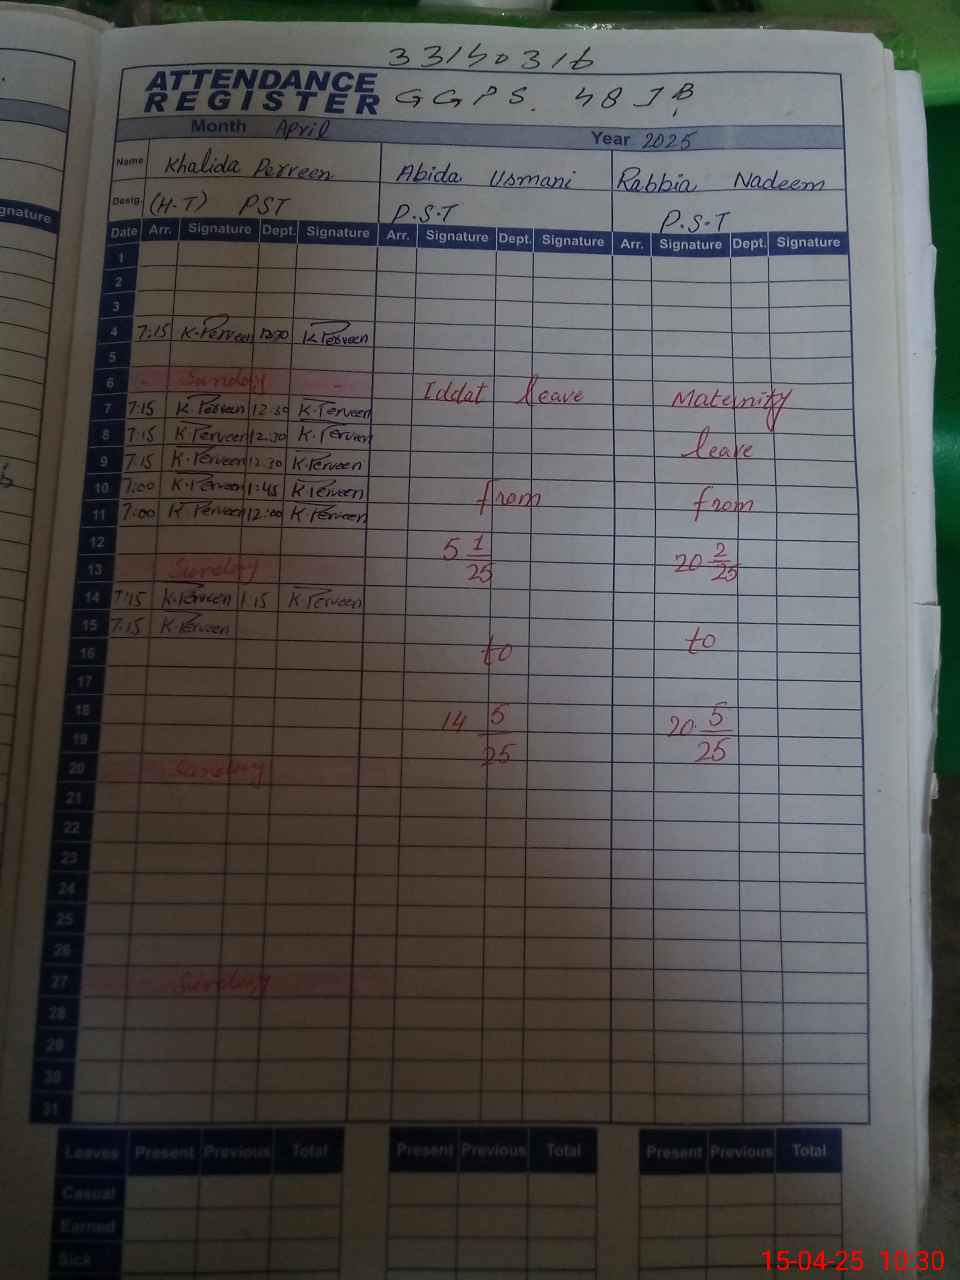 33140316
ATTENDANCE
REGISTER
GGPS. 48 J.B
Month April Year 2025
Name Khalida Perveen Abida Usmani Rabbia Nadeem
Desig. (H-T) PST P.S.T P.S.T
gnature
Date Arr. Signature Dept. Signature Arr. Signature Dept. Signature Arr. Signature Dept. Signature
1
2
3
4 7:15 K.Perveen K.Perveen
5
6 Sunday Iddat leave Maternity
7 7:15 K.Perveen 12.30 K.Perveen
8 7:15 K.Perveen 12.30 K.Perveen leave
9 7.15 K.Perveen 12.30 K.Perveen
10 7:00 K.Perveen 1:45 K.Perveen from from
11 7:00 K.Perveen 12:00 K.Perveen
12 5 1/25 20 2/25
13 Sunday
14 7:15 K.Perveen 1.15 K.Perveen
15 7.15 K.Perveen to
16 to
17
18 14 5/25 20. 5/25
19
20 Sunday
21
22
23
24
25
26
27 Sunday
28
29
30
31
Leaves Present Previous Total Present Previous Total Present Previous Total
Casual
Earned
Sick
15-04-25 10:30